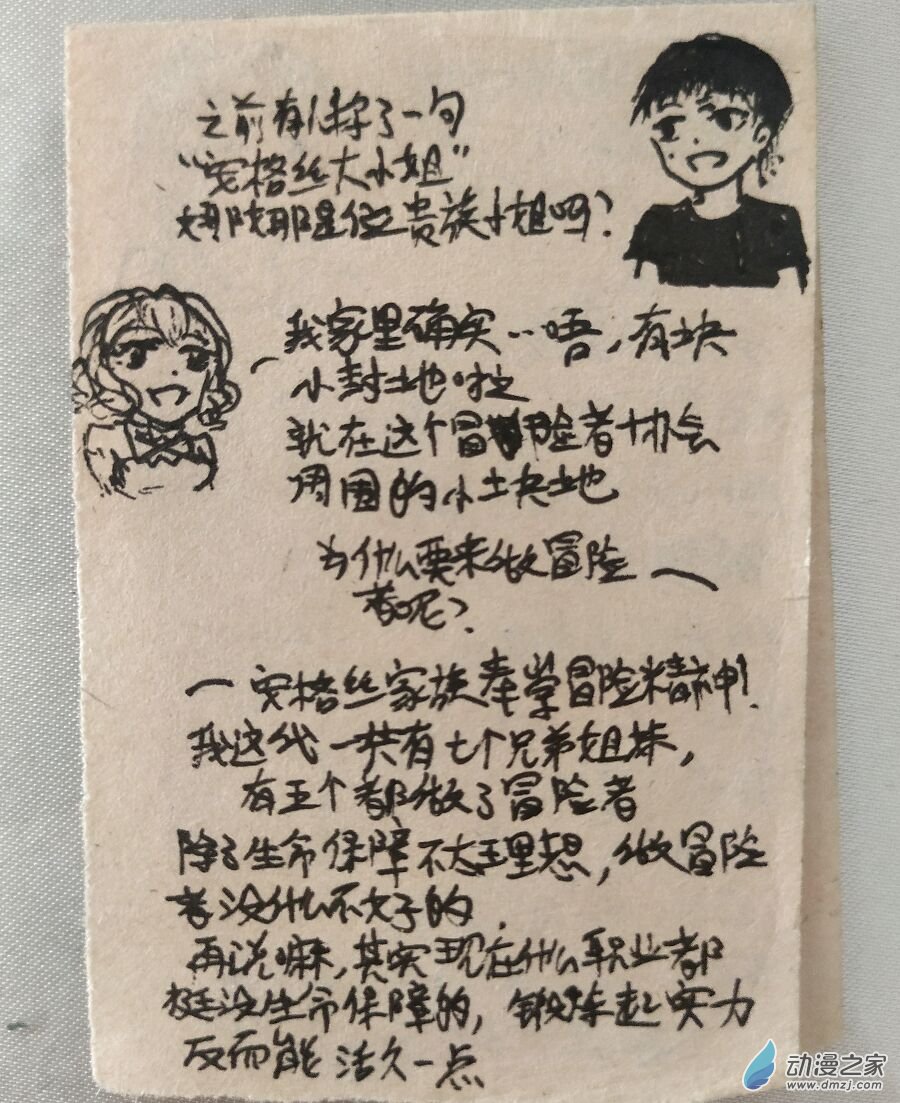 之前有人称了一句
“安格丝大小姐”
娜陂那是位贵族小姐吗?
我家里确实…唔，有块
小封地啦
就在这个冒险者协会
周围的小土块地
为什么要来做冒险
者呢?
安格丝家族奉学冒险精神!
我这代一共有七个兄弟姐妹，
有五个都做了冒险者
除了生命保障不太理想，做冒险
者没什么不好的.
再说嘛，其实现在什么职业都
挺没生命保障的，锻炼起实力
反而能活久一点
动漫之家
www.dmzj.com